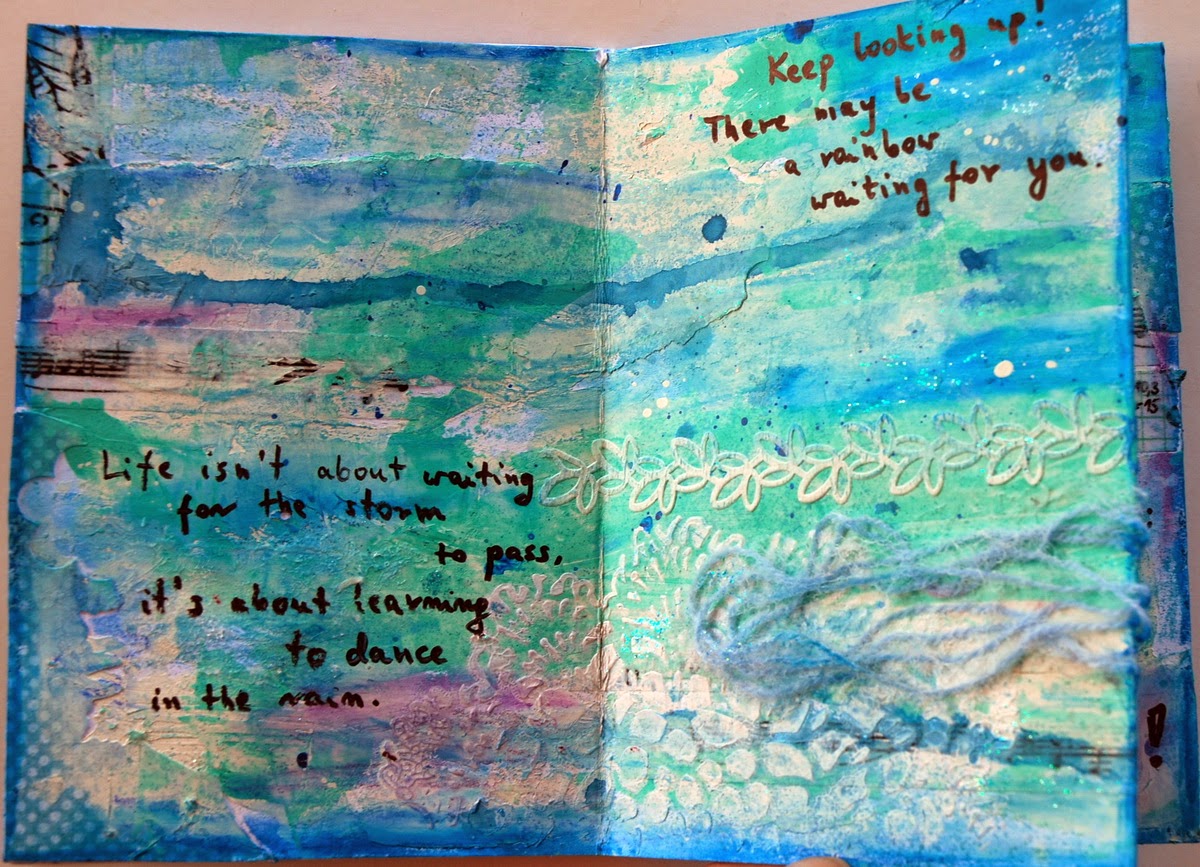 Life isn't about waiting
for the storm
to pass,
it's about learning
to dance
in the rain.
Keep looking up!
There may be
a rainbow
waiting for you.
!